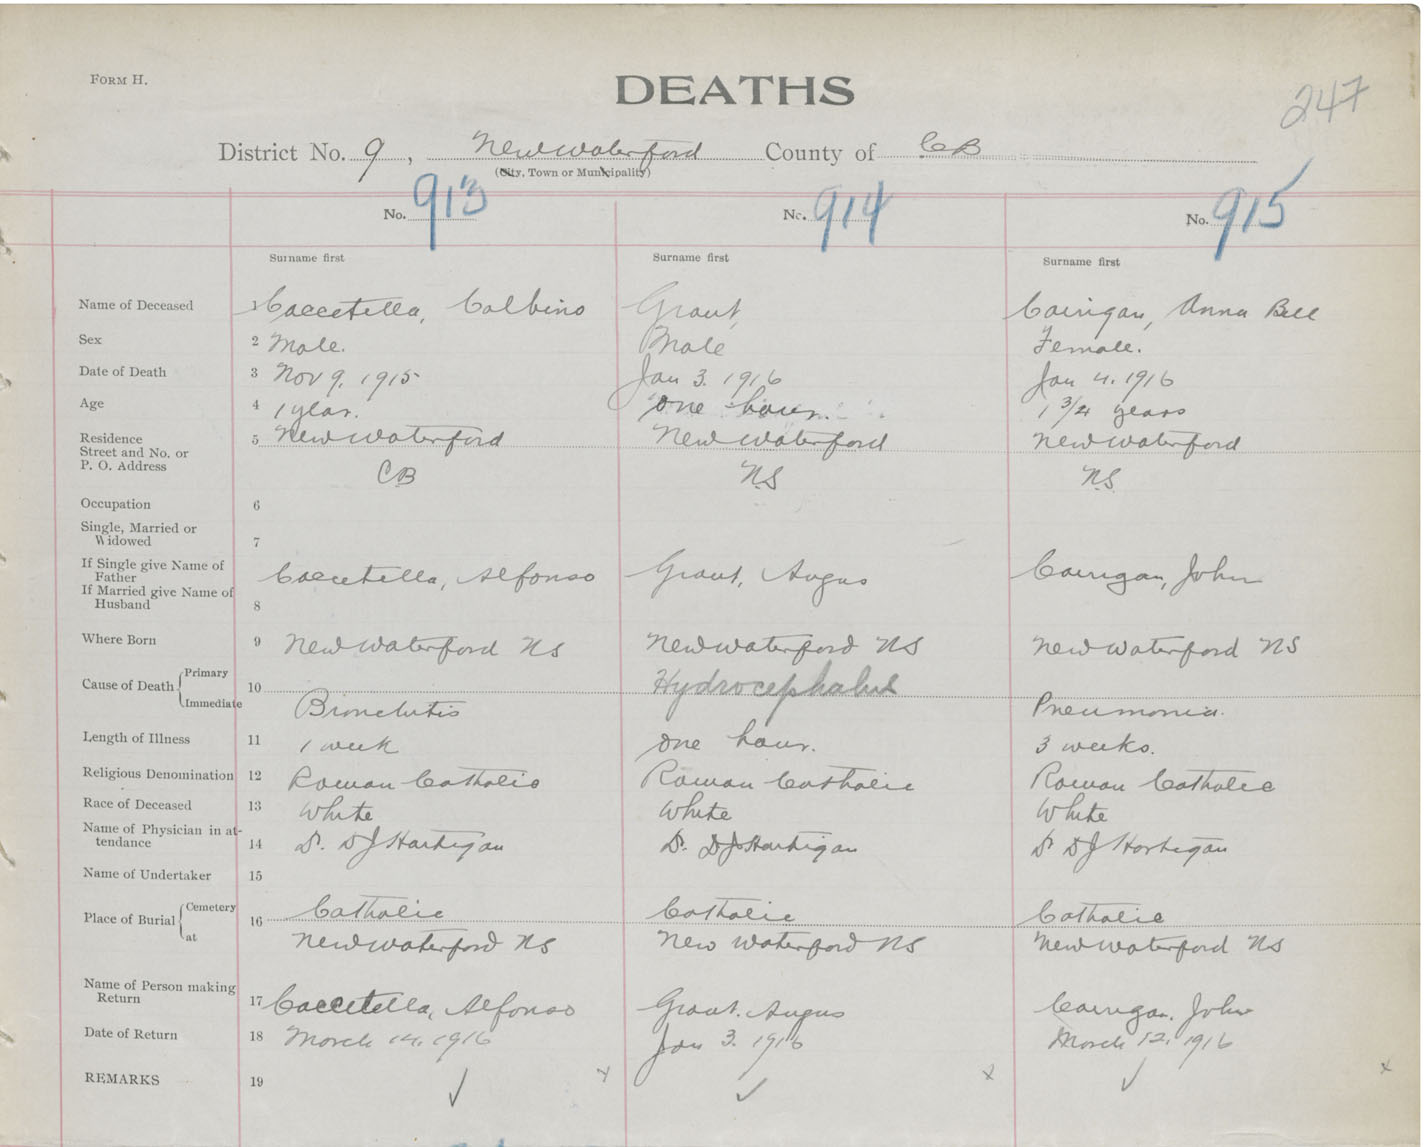 FORM H.
DEATHS
247
District No. 9, New Waterford County of CB
(City, Town or Municipality)
No. 913 No. 914 No. 915
Surname first Surname first Surname first
Name of Deceased 1 Caccetella, Colbino Grant, Corrigan, Anna Bell
Sex 2 Male. Male Female.
Date of Death 3 Nov 9, 1915 Jan 3. 1916 Jan 4. 1916
Age 4 1 year. one hour. 1 3/4 years
Residence 5 New Waterford New Waterford New Waterford
Street and No. or
P. O. Address CB NS NS
Occupation 6
Single, Married or
Widowed 7
If Single give Name of
Father Caccetella, Alfonso Grant, Angus Corrigan, John
If Married give Name of
Husband 8
Where Born 9 New Waterford NS New Waterford NS New Waterford NS
Cause of Death Primary 10 Hydrocephalus
Immediate Bronchitis Pneumonia.
Length of Illness 11 1 week one hour. 3 weeks.
Religious Denomination 12 Roman Catholic Roman Catholic Roman Catholic
Race of Deceased 13 White White White
Name of Physician in at-
tendance 14 Dr. D J Hartigan Dr. D J Hartigan Dr D J Hartigan
Name of Undertaker 15
Place of Burial Cemetery 16 Catholic Catholic Catholic
at New Waterford NS New Waterford NS New Waterford NS
Name of Person making
Return 17 Caccetella, Alfonso Grant. Angus Corrigan, John
Date of Return 18 March 14, 1916 Jan 3. 1916 March 12, 1916
REMARKS 19